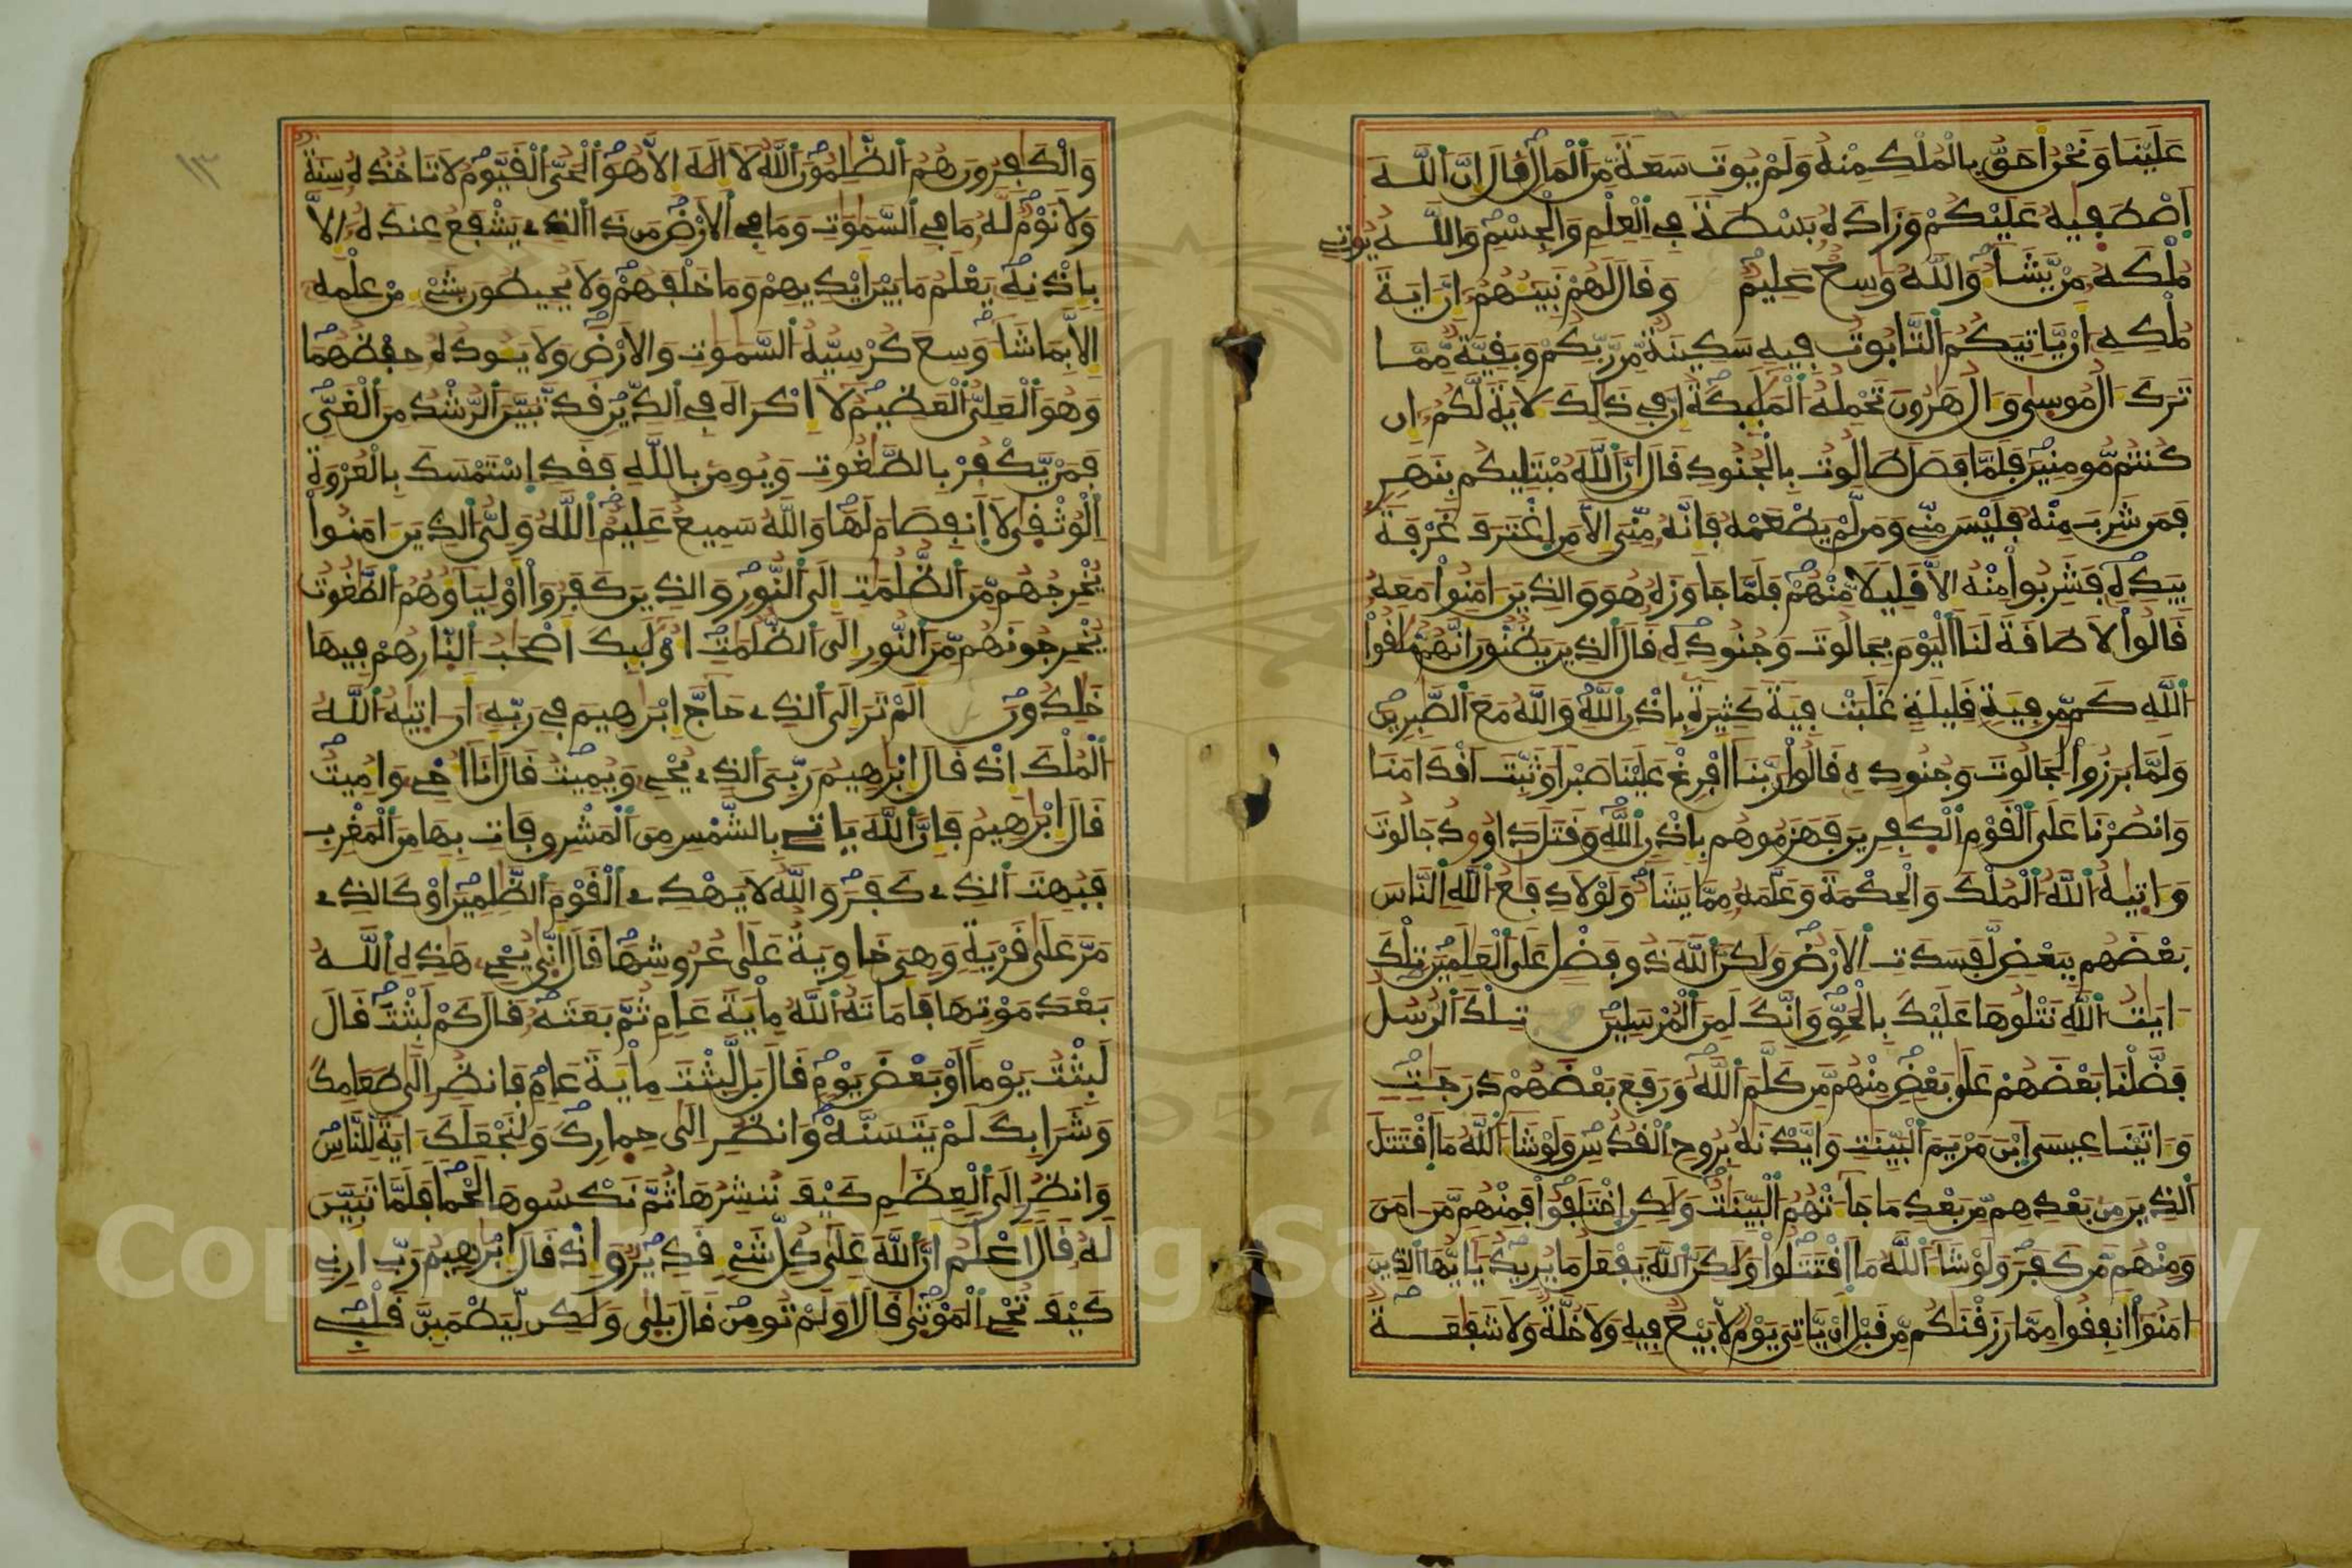 عَلَيْنَا وَنَحْنُ أَحَقُّ بِالْمُلْكِ مِنْهُ وَلَمْ يُوتَ سَعَةً مِّنَ ٱلْمَالِ قَالَ إِنَّ ٱللَّهَ
ٱصْطَفِيهُ عَلَيْكُمْ وَزَادَهُ بَسْطَةً فِي ٱلْعِلْمِ وَالْجِسْمِ وَاللَّهُ يُوتِي
مُلْكَهُ مَنْ يَّشَآءُ وَاللَّهُ وَسِعٌ عَلِيمٌ وَقَالَ لَهُمْ نَبِيٓـُٔهُمْ إِنَّ ءَايَةَ
مُلْكِهِ أَنْ يَّاتِيَكُمُ ٱلتَّابُوتُ فِيهِ سَكِينَةٌ مِّن رَّبِّكُمْ وَبَقِيَّةٌ مِّمَّا
تَرَكَ ءَالُ مُوسِى وَءَالُ هَرُونَ تَحْمِلُهُ ٱلْمَلَٰٓئِكَةُ إِنَّ فِي ذَٰلِكَ لَأٓيَةً لَّكُمْ إِن
كُنتُم مُّومِنِينَ فَلَمَّا فَصَلَ طَالُوتُ بِالْجُنُودِ قَالَ إِنَّ ٱللَّهَ مُبْتَلِيكُم بِنَهَرٍ
فَمَن شَرِبَ مِنْهُ فَلَيْسَ مِنِّي وَمَن لَّمْ يَطْعَمْهُ فَإِنَّهُ مِنِّيَ إِلَّا مَنِ ٱغْتَرَفَ غَرْفَةً
بِيَدِهِ فَشَرِبُوا مِنْهُ إِلَّا قَلِيلًا مِّنْهُمْ فَلَمَّا جَاوَزَهُ هُوَ وَالذِينَ ءَامَنُوا مَعَهُ
قَالُوا لَا طَاقَةَ لَنَا ٱلْيَوْمَ بِجَالُوتَ وَجُنُودِهِ قَالَ ٱلذِينَ يَظُنُّونَ أَنَّهُم مُّلَٰقُوا
ٱللَّهِ كَم مِّن فِيَةٍ قَلِيلَةٍ غَلَبَتْ فِيَةً كَثِيرَةً بِإِذْنِ ٱللَّهِ وَاللَّهُ مَعَ ٱلصَّٰبِرِينَ
وَلَمَّا بَرَزُوا لِجَالُوتَ وَجُنُودِهِ قَالُوا رَبَّنَا أَفْرِغْ عَلَيْنَا صَبْرًا وَثَبِّتَ اَقْدَامَنَا
وَانصُرْنَا عَلَى ٱلْقَوْمِ ٱلْكَٰفِرِينَ فَهَزَمُوهُم بِإِذْنِ ٱللَّهِ وَقَتَلَ دَاوُودُ جَالُوتَ
وَءَاتِيهُ ٱللَّهُ ٱلْمُلْكَ وَالْحِكْمَةَ وَعَلَّمَهُ مِمَّا يَشَآءُ وَلَوْلَا دِفَٰعُ ٱللَّهِ ٱلنَّاسَ
بَعْضَهُم بِبَعْضٍ لَّفَسَدَتِ ٱلْأَرْضُ وَلَكِنَّ ٱللَّهَ ذُو فَضْلٍ عَلَى ٱلْعَٰلَمِينَ تِلْكَ
ءَايَٰتُ ٱللَّهِ نَتْلُوهَا عَلَيْكَ بِالْحَقِّ وَإِنَّكَ لَمِنَ ٱلْمُرْسَلِينَ تِلْكَ ٱلرُّسُلُ
فَضَّلْنَا بَعْضَهُمْ عَلَى بَعْضٍ مِّنْهُم مَّن كَلَّمَ ٱللَّهُ وَرَفَعَ بَعْضَهُمْ دَرَجَٰتٍ
وَءَاتَيْنَا عِيسَى ٱبْنَ مَرْيَمَ ٱلْبَيِّنَٰتِ وَأَيَّدْنَٰهُ بِرُوحِ ٱلْقُدُسِ وَلَوْ شَآءَ ٱللَّهُ مَا ٱقْتَتَلَ
ٱلذِينَ مِن بَعْدِهِم مِّن بَعْدِ مَا جَآءَتْهُمُ ٱلْبَيِّنَٰتُ وَلَكِنِ ٱخْتَلَفُوا فَمِنْهُم مَّن ءَامَنَ
وَمِنْهُم مَّن كَفَرَ وَلَوْ شَآءَ ٱللَّهُ مَا ٱقْتَتَلُوا وَلَكِنَّ ٱللَّهَ يَفْعَلُ مَا يُرِيدُ يَٰٓأَيُّهَا ٱلذِينَ
ءَامَنُوا أَنفِقُوا مِمَّا رَزَقْنَٰكُم مِّن قَبْلِ أَنْ يَّاتِيَ يَوْمٌ لَّا بَيْعٌ فِيهِ وَلَا خُلَّةٌ وَلَا شَفَٰعَةٌ
١٣
وَالْكَٰفِرُونَ هُمُ ٱلظَّٰلِمُونَ ٱللَّهُ لَا إِلَٰهَ إِلَّا هُوَ ٱلْحَيُّ ٱلْقَيُّومُ لَا تَاخُذُهُ سِنَةٌ
وَلَا نَوْمٌ لَّهُ مَا فِي ٱلسَّمَٰوَٰتِ وَمَا فِي ٱلْأَرْضِ مَن ذَا ٱلذِي يَشْفَعُ عِندَهُ إِلَّا
بِإِذْنِهِ يَعْلَمُ مَا بَيْنَ أَيْدِيهِمْ وَمَا خَلْفَهُمْ وَلَا يُحِيطُونَ بِشَيْءٍ مِّنْ عِلْمِهِ
إِلَّا بِمَا شَآءَ وَسِعَ كُرْسِيُّهُ ٱلسَّمَٰوَٰتِ وَالْأَرْضَ وَلَا يَـُٔودُهُ حِفْظُهُمَا
وَهُوَ ٱلْعَلِيُّ ٱلْعَظِيمُ لَا إِكْرَاهَ فِي ٱلدِّينِ قَد تَّبَيَّنَ ٱلرُّشْدُ مِنَ ٱلْغَيِّ
فَمَنْ يَّكْفُرْ بِالطَّٰغُوتِ وَيُومِن بِاللَّهِ فَقَدِ ٱسْتَمْسَكَ بِالْعُرْوَةِ
ٱلْوُثْقِى لَا ٱنفِصَامَ لَهَا وَاللَّهُ سَمِيعٌ عَلِيمٌ ٱللَّهُ وَلِيُّ ٱلذِينَ ءَامَنُوا
يُخْرِجُهُم مِّنَ ٱلظُّلُمَٰتِ إِلَى ٱلنُّورِ وَالذِينَ كَفَرُوا أَوْلِيَآؤُهُمُ ٱلطَّٰغُوتُ
يُخْرِجُونَهُم مِّنَ ٱلنُّورِ إِلَى ٱلظُّلُمَٰتِ أُوْلَٰٓئِكَ أَصْحَٰبُ ٱلنَّارِ هُمْ فِيهَا
خَٰلِدُونَ أَلَمْ تَرَ إِلَى ٱلذِي حَآجَّ إِبْرَٰهِيمَ فِي رَبِّهِ أَنَ اتِيهُ ٱللَّهُ
ٱلْمُلْكَ إِذْ قَالَ إِبْرَٰهِيمُ رَبِّيَ ٱلذِي يُحْيِ وَيُمِيتُ قَالَ أَنَا أُحْيِ وَأُمِيتُ
قَالَ إِبْرَٰهِيمُ فَإِنَّ ٱللَّهَ يَاتِي بِالشَّمْسِ مِنَ ٱلْمَشْرِقِ فَاتِ بِهَا مِنَ ٱلْمَغْرِبِ
فَبُهِتَ ٱلذِي كَفَرَ وَاللَّهُ لَا يَهْدِي ٱلْقَوْمَ ٱلظَّٰلِمِينَ أَوْ كَالذِي
مَرَّ عَلَى قَرْيَةٍ وَهِيَ خَاوِيَةٌ عَلَى عُرُوشِهَا قَالَ أَنِّى يُحْيِ هَٰذِهِ ٱللَّهُ
بَعْدَ مَوْتِهَا فَأَمَاتَهُ ٱللَّهُ مِاْيَةَ عَامٍ ثُمَّ بَعَثَهُ قَالَ كَمْ لَبِثْتَ قَالَ
لَبِثْتُ يَوْمًا أَوْ بَعْضَ يَوْمٍ قَالَ بَل لَّبِثْتَ مِاْيَةَ عَامٍ فَانظُرِ إِلَى طَعَامِكَ
وَشَرَابِكَ لَمْ يَتَسَنَّهْ وَانظُرِ إِلَى حِمَارِكَ وَلِنَجْعَلَكَ ءَايَةً لِّلنَّاسِ
وَانظُرِ إِلَى ٱلْعِظَٰمِ كَيْفَ نُنشِرُهَا ثُمَّ نَكْسُوهَا لَحْمًا فَلَمَّا تَبَيَّنَ
لَهُ قَالَ أَعْلَمُ أَنَّ ٱللَّهَ عَلَى كُلِّ شَيْءٍ قَدِيرٌ وَإِذْ قَالَ إِبْرَٰهِيمُ رَبِّ أَرِنِي
كَيْفَ تُحْيِ ٱلْمَوْتِى قَالَ أَوَلَمْ تُومِن قَالَ بَلِى وَلَكِن لِّيَطْمَئِنَّ قَلْبِي
Copyright © King Saud University
1957